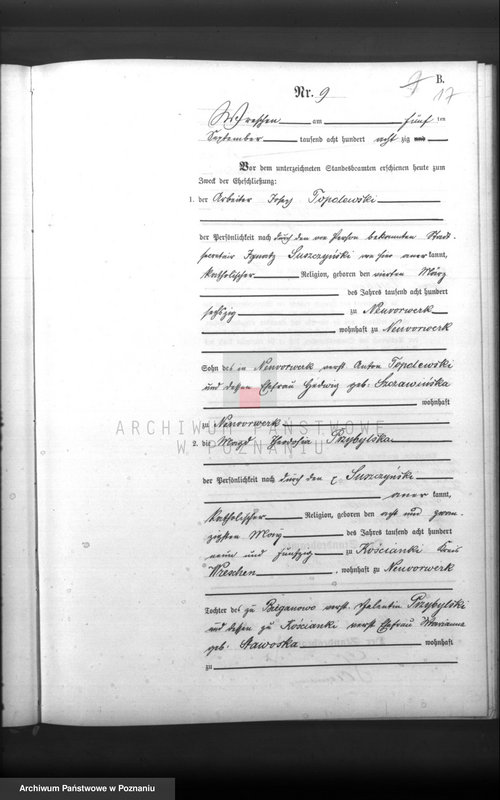 B.
17
Nr. 9
Wreschen am fünf ten
September tausend acht hundert acht zig und
Vor dem unterzeichneten Standesbeamten erschienen heute zum
Zweck der Eheschließung:
1. der Arbeiter Josef Topolewski
der Persönlichkeit nach durch den von Person bekannten Stadt-
secretair Ignatz Suszczyński aner kannt,
katholischer Religion, geboren den vierten März
des Jahres tausend acht hundert
sechszig zu Neuvorwerk
wohnhaft zu Neuvorwerk
Sohn des in Neuvorwerk verst. Anton Topolewski
und dessen Ehefrau Hedwig geb. Szczawińska
wohnhaft
zu Neuvorwerk
2. die Magd Theodosia Przybylska
der Persönlichkeit nach durch den p Suszczyński
aner kannt,
katholischer Religion, geboren den acht und zwan-
zigsten März des Jahres tausend acht hundert
neun und fünfzig zu Kościanki Kreis
Wreschen, wohnhaft zu Neuvorwerk
Tochter des zu Bieganowo verst. Valentin Przybylski
und dessen zu Kościanki verst. Ehefrau Marianna
geb. Stawoska wohnhaft
zu
ARCHIWUM PAŃSTWOWE
W POZNANIU
Archiwum Państwowe w Poznaniu